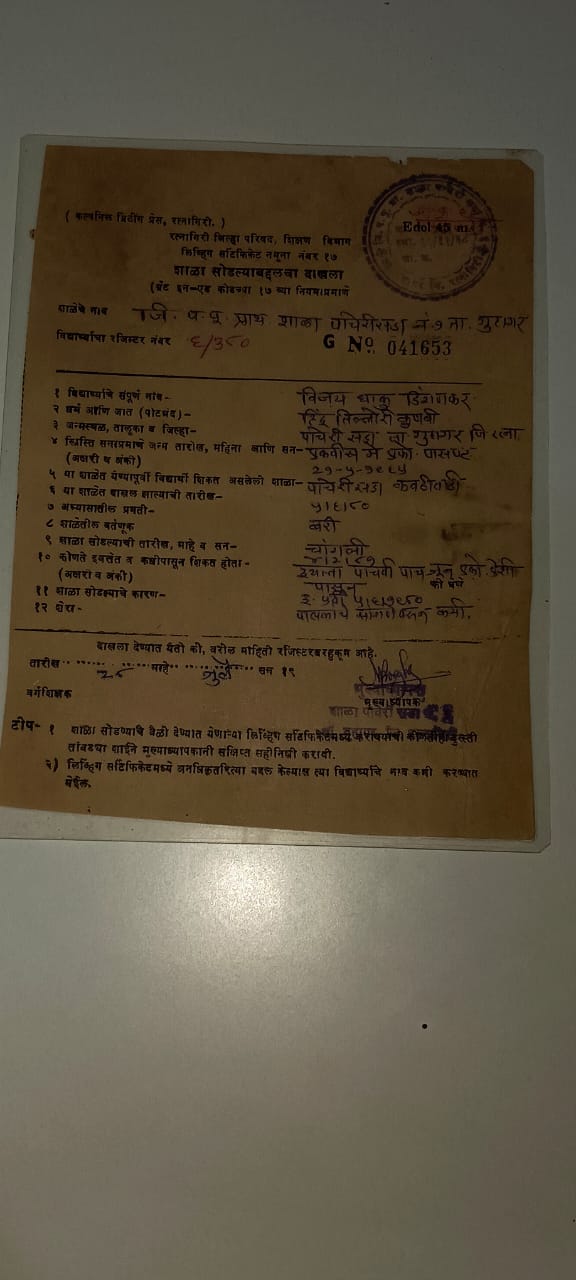 ( कल्पनिल प्रिंटींग प्रेस, रत्नागिरी. )
Edol 45 m.
रत्नागिरी जिल्हा परिषद, शिक्षण विभाग
लिव्हिंग सर्टिफिकेट नमूना नंबर १७
शाळा सोडल्याबद्दलचा दाखला
(ग्रँट इन-एड कोडच्या १७ व्या नियमाप्रमाणे
शाळेचे नाव जि. प. पू. प्राथ शाळा पाचेरीसडा नं. १ ता. गुहागर
विद्यार्थ्याचा रजिस्टर नंबर ६/३८० G No. 041653
१ विद्यार्थ्याचे संपूर्ण नांव- विजय धाकु डिंगणकर
२ धर्म आणि जात (पोटभेद)- हिंदू तिल्लोरी कुणबी
३ जन्मस्थळ, तालुका व जिल्हा- पाचेरी सडा ता गुहागर जि रत्ना
४ ख्रिस्ति सनाप्रमाणे जन्म तारीख, महिना आणि सन- एकवीस मे एको. पासष्ट
(अक्षरी व अंकी) २१-५-१९६५
५ या शाळेत येण्यापूर्वी विद्यार्थी शिकत असलेली शाळा- पाचेरीसडा
६ या शाळेत दाखल झाल्याची तारीख- ५।६।८०
७ अभ्यासातील प्रगती- बरी
८ शाळेतील वर्तणूक चांगली
९ शाळा सोडल्याची तारीख, माहे व सन-
१० कोणते इयत्तेत व कधीपासून शिकत होता- इयत्ता पाचवी पाच जून एको. ऐंशी
(अक्षरी व अंकी) पासून
११ शाळा सोडल्याचे कारण-
१२ शेरा-
दाखला देण्यात येतो की, वरील माहिती रजिस्टरबरहुकूम आहे.
तारीख २८ माहे जुलै सन १९
वर्गशिक्षक
मुख्याध्यापक
शाळा पाचेरी सडा
टीप- १ शाळा सोडण्याचे वेळी देण्यात येणाऱ्या लिव्हिंग सर्टिफिकेटमध्ये करावयाची कोणतीही दुरुस्ती
तांबड्या शाईने मुख्याध्यापकांनी संक्षिप्त सहीनिशी करावी.
२) लिव्हिंग सर्टिफिकेटमध्ये अनधिकृतरित्या बदल केल्यास त्या विद्यार्थ्याचे नाव कमी करण्यात
येईल.